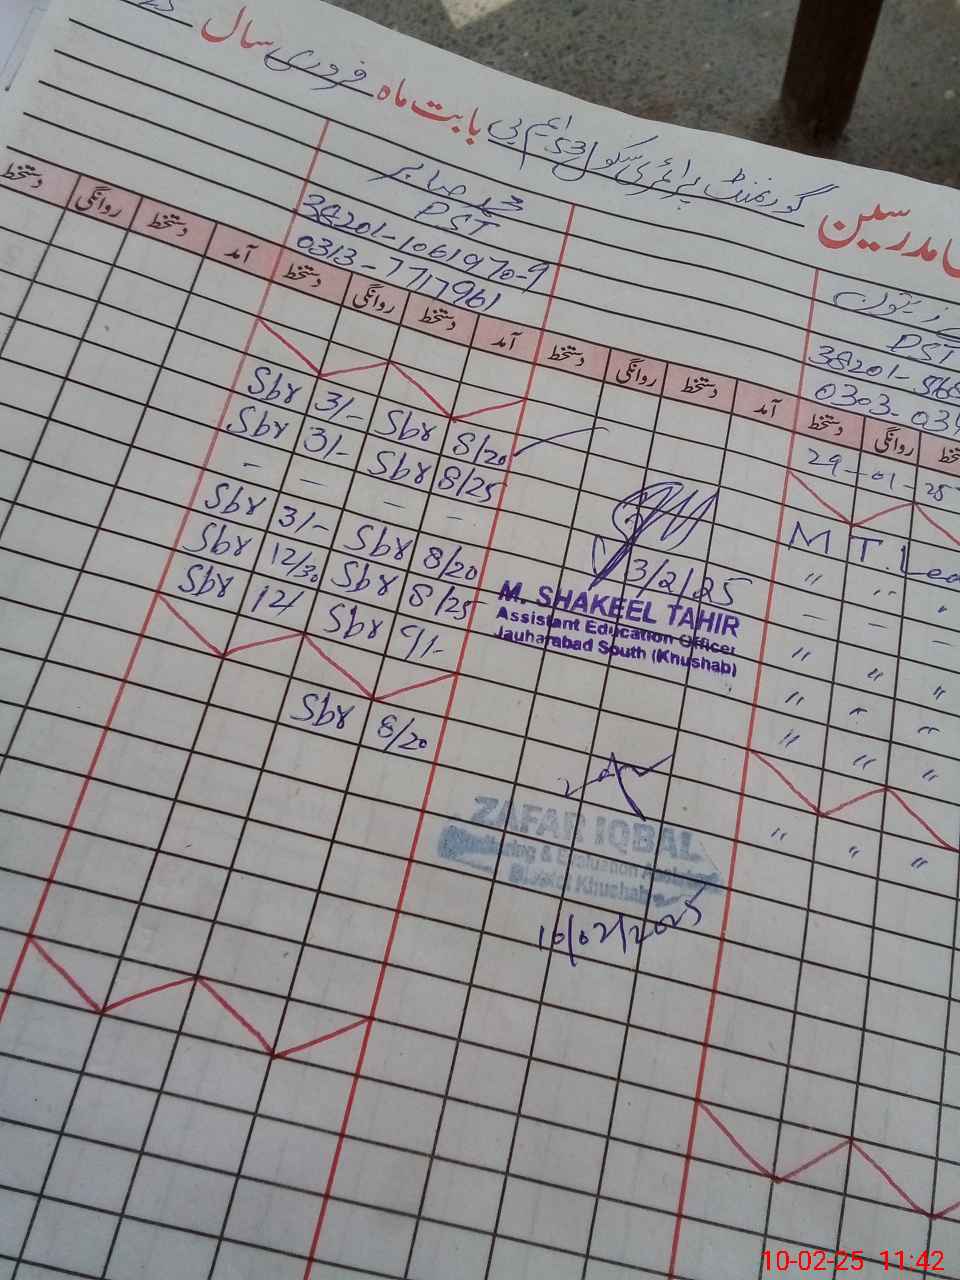 مدرسین گورنمنٹ پرائمری سکول 53 ایم بی بابت ماہ فروری سال
محمد صابر
PST
38201-1061970-9
0313-7717961
PST
38201-
0303-
آمد دستخط روانگی دستخط
آمد دستخط روانگی دستخط
آمد دستخط روانگی دستخط
دستخط روانگی دستخط
29-01-25
8/20 Sbr 3/- Sbr
8/25 Sbr 3/- Sbr
- - - -
8/20 Sbr 3/- Sbr
8/25 Sbr 12/30 Sbr
9/- Sbr 12/ Sbr
8/20 Sbr
M T. Lea
" " "
- - -
" " "
" " "
" " "
" " "
3/2/25
M. SHAKEEL TAHIR
Assistant Education Officer
Jauharabad South (Khushab)
ZAFAR IQBAL
Monitoring & Evaluation Assistant
District Khushab
10/02/2025
10-02-25 11:42